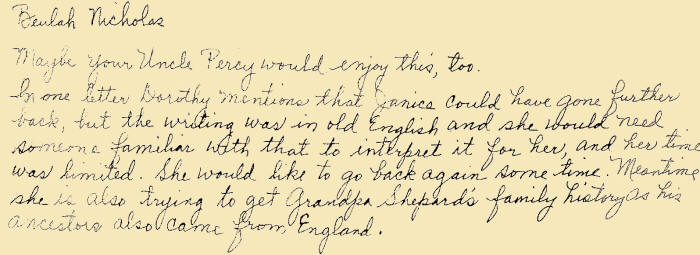 Beulah Nicholas
Maybe your Uncle Percy would enjoy this, too.
In one letter Dorothy mentions that Janice could have gone further
back, but the writing was in old English and she would need
someone familiar with that to interpret it for her, and her time
was limited. She would like to go back again some time. Meantime
she is also trying to get Grandpa Shepard's family history as his
ancestors also came from England.